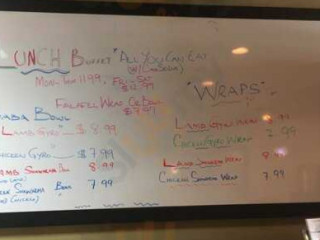 LUNCH BUFFET "ALL YOU CAN EAT
MON-THU 11.99, FRI-SAT
$12.99
FALAFEL WRAP OR BOWL
$7.99
"WRAPS"
BOWL
LAMB GYRO $8.99
CHICKEN GYRO $7.99
LAMB SHAWARMA 8.99
SHAWARMA BOWL 7.99
(CHICKEN)
LAMB GYRO WRAP
CHICKEN GYRO WRAP 7.99
LAMB SHAWARMA WRAP
CHICKEN SHAWARMA WRAP 7.99